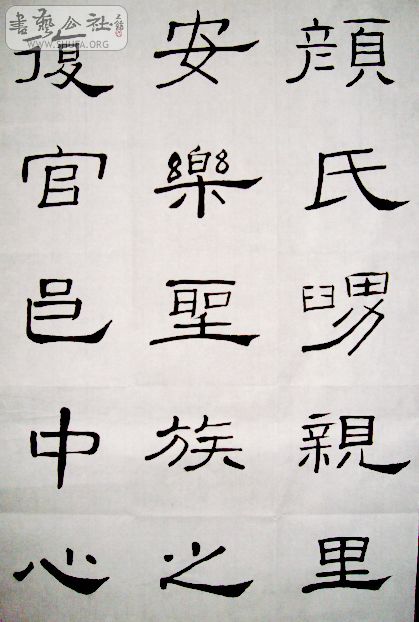 顏氏舅親里
安樂聖族之
復官邑中心
書藝公社
WWW.SHUFA.ORG